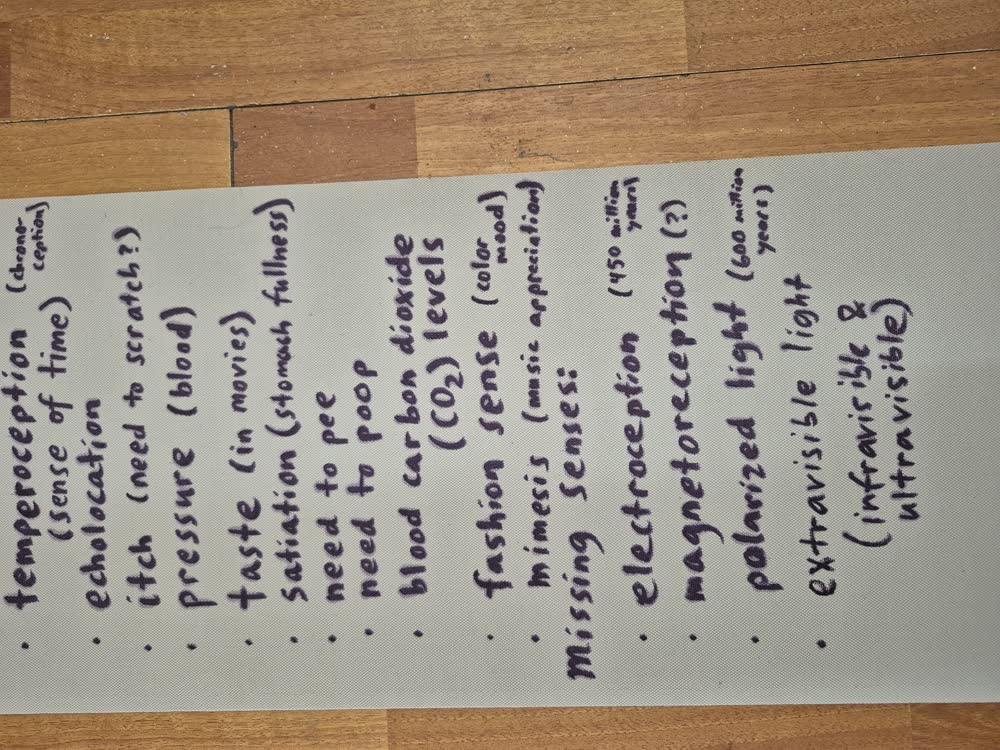 • temperoception (chrono-
ception)
(sense of time)
• echolocation
• itch (need to scratch?)
• pressure (blood)
• taste (in movies)
• satiation (stomach fullness)
• need to pee
• need to poop
• blood carbon dioxide
(CO₂) levels
• fashion sense (color
mood)
• mimesis (music appreciation)
Missing Senses:
• electroception (450 million
years)
• magnetoreception (?)
• polarized light (600 million
years)
• extravisible light
(infravisible &
ultravisible)